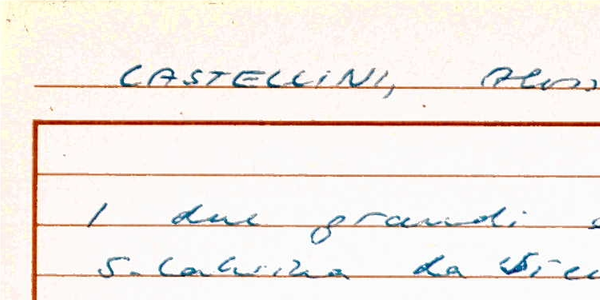 CASTELLINI,
I due grandi
S. Caterina da